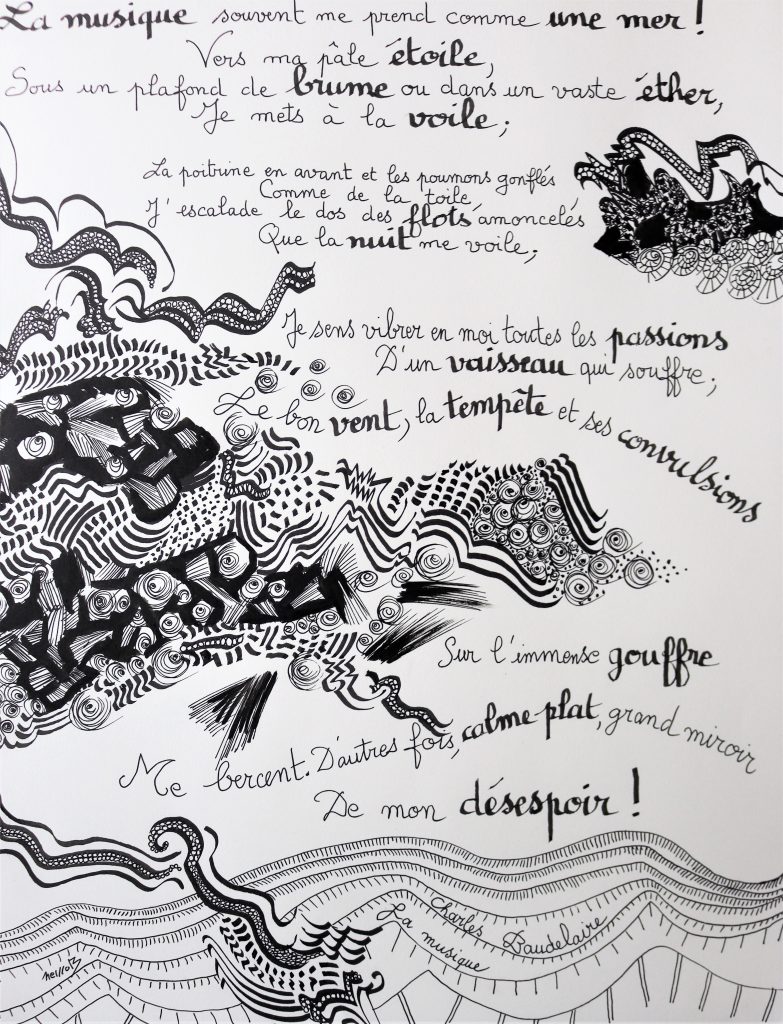 La musique souvent me prend comme une mer !
Vers ma pâle étoile,
Sous un plafond de brume ou dans un vaste éther,
Je mets à la voile ;
La poitrine en avant et les poumons gonflés
Comme de la toile,
J'escalade le dos des flots amoncelés
Que la nuit me voile ;
Je sens vibrer en moi toutes les passions
D'un vaisseau qui souffre ;
Le bon vent, la tempête et ses convulsions
Sur l'immense gouffre
Me bercent. D'autres fois, calme plat, grand miroir
De mon désespoir !
Charles Baudelaire
La musique